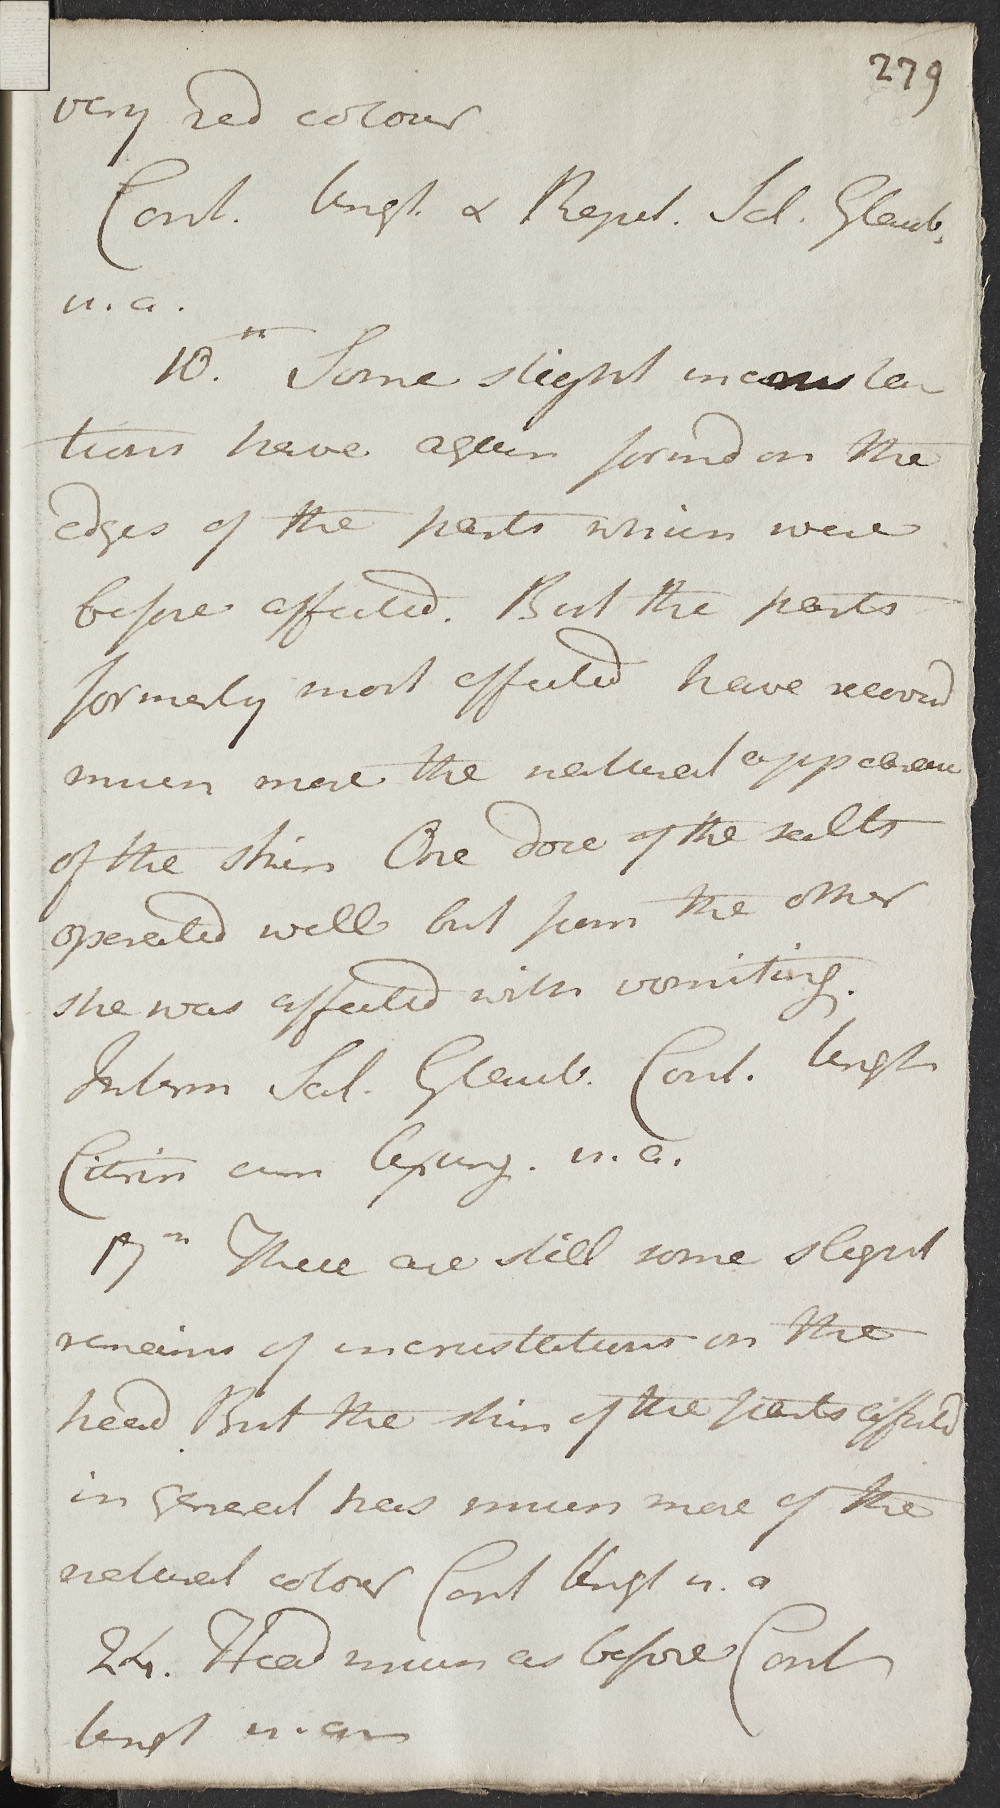 279
very red colour
Cont. Ungt. & Repet. Sal. Glaub.
u. a.
10.th Some slight incrusta
tions have again formd on the
edges of the parts which were
before affected. But the parts
formerly most affected have recoverd
much more the natural appearan
of the skin One dose of the salts
operated well but from the other
she was affected with vomiting.
Interm Sal. Glaub. Cont. Ungt
Citrin cum Axung. u. a.
17th There are still some slight
remains of incrustations on the
head But the skin of the parts affected
in general has much more of the
natural colour Cont Ungt u. a
24. Head much as before Cont
Ungt u. a